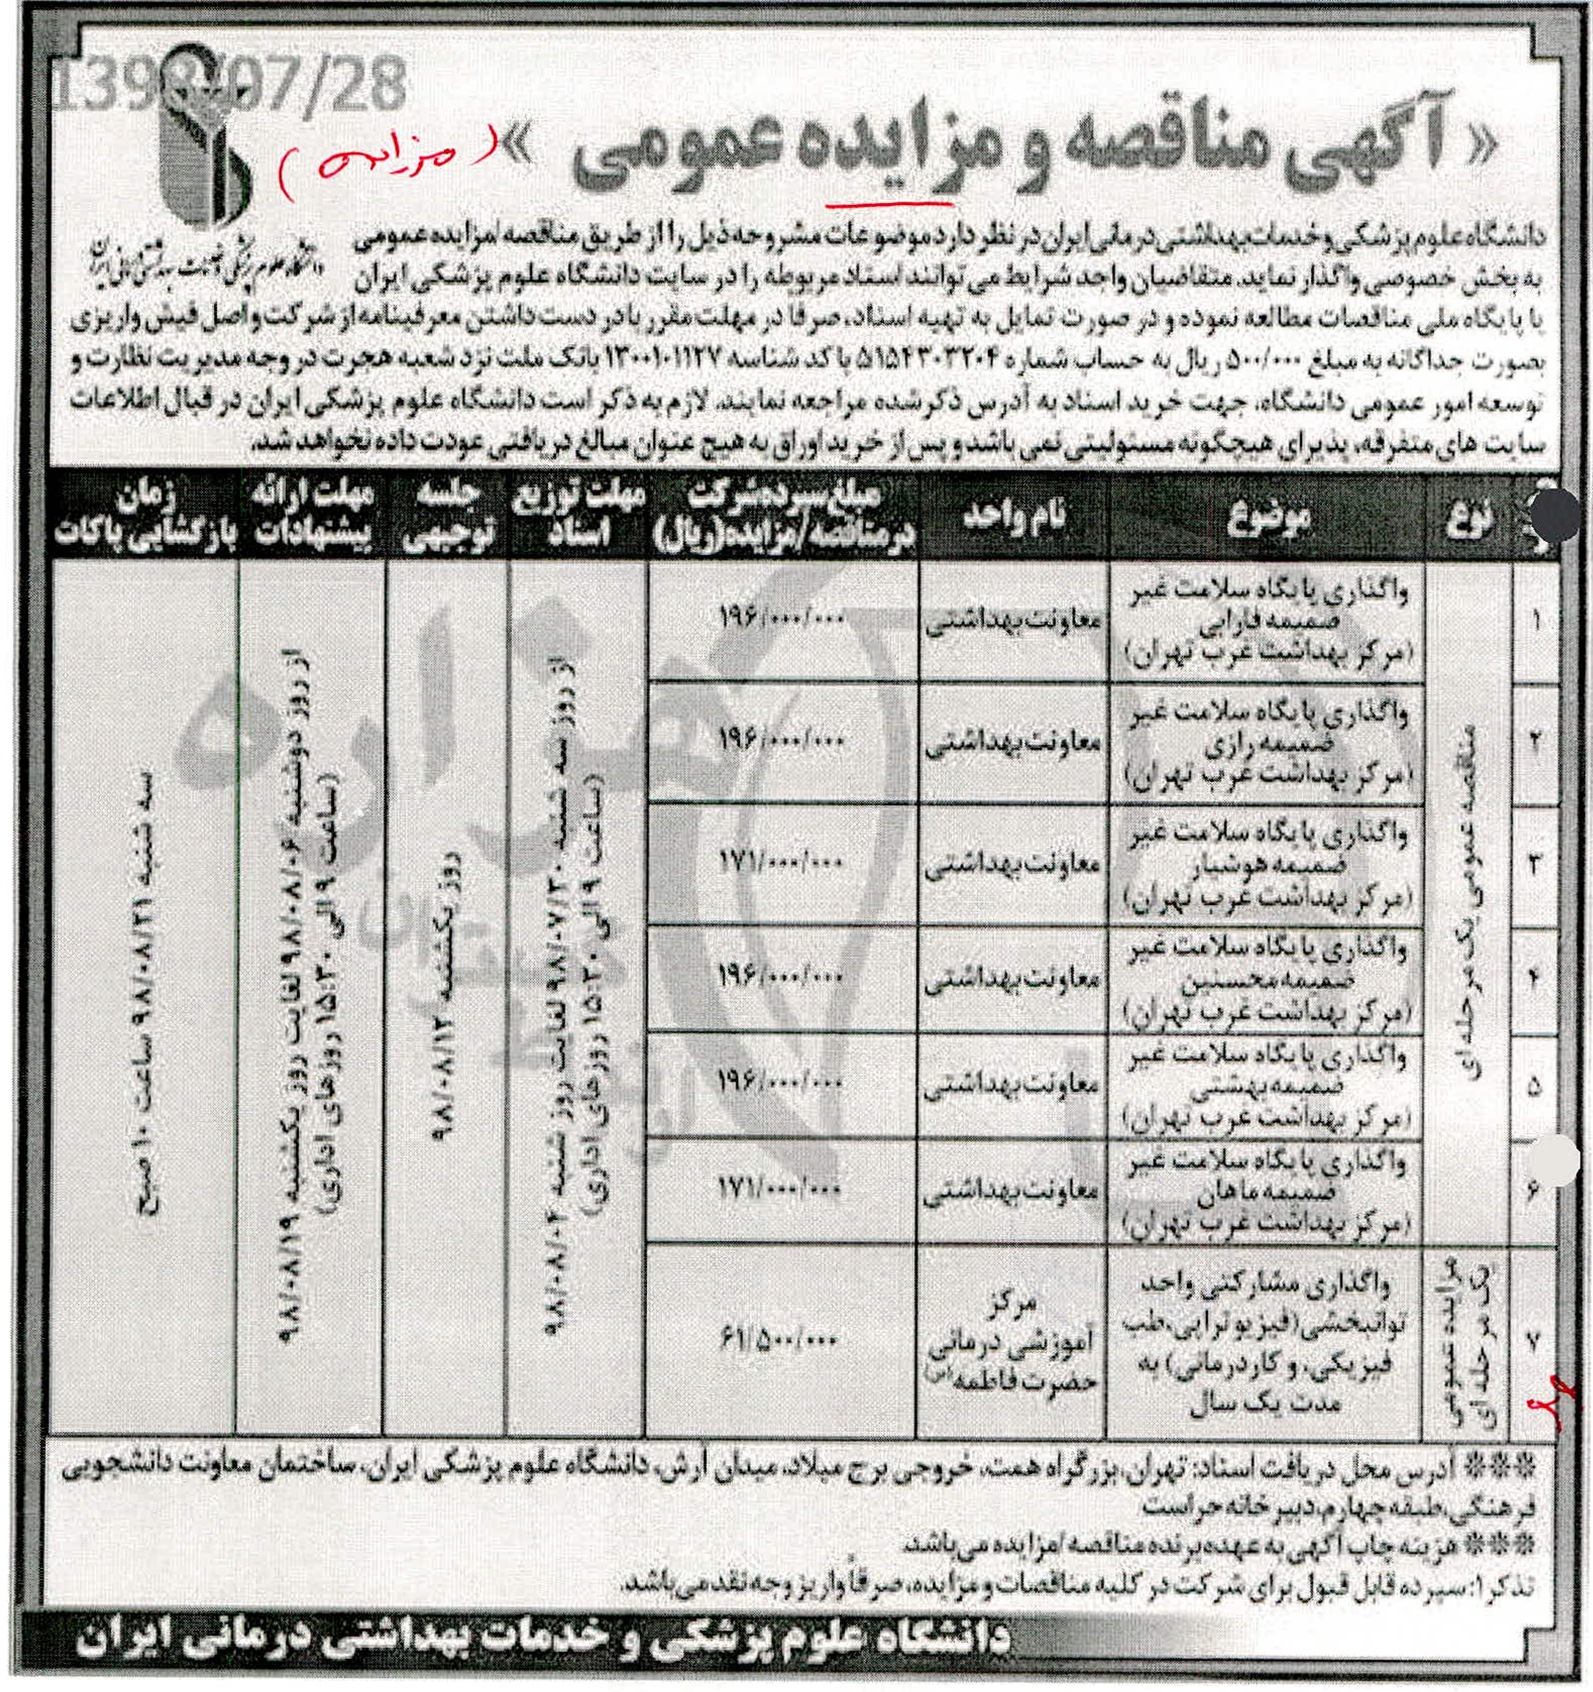 1398/07/28
« آگهی مناقصه و مزایده عمومی »
دانشگاه علوم پزشکی و خدمات بهداشتی درمانی ایران
دانشگاه علوم پزشکی و خدمات بهداشتی درمانی ایران در نظر دارد موضوعات مشروحه ذیل را از طریق مناقصه/مزایده عمومی
به بخش خصوصی واگذار نماید. متقاضیان واجد شرایط می توانند اسناد مربوطه را در سایت دانشگاه علوم پزشکی ایران
یا پایگاه ملی مناقصات مطالعه نموده و در صورت تمایل به تهیه اسناد، صرفا در مهلت مقرر با در دست داشتن معرفینامه از شرکت و اصل فیش واریزی
بصورت جداگانه به مبلغ ۵۰۰/۰۰۰ ریال به حساب شماره ۵۱۵۴۳۰۳۲۰۴ با کد شناسه ۱۳۰۰۱۰۱۱۲۷ بانک ملت نزد شعبه هجرت در وجه مدیریت نظارت و
توسعه امور عمومی دانشگاه، جهت خرید اسناد به آدرس ذکر شده مراجعه نمایند. لازم به ذکر است دانشگاه علوم پزشکی ایران در قبال اطلاعات
سایت های متفرقه، پذیرای هیچگونه مسئولیتی نمی باشد و پس از خرید اوراق به هیچ عنوان مبالغ دریافتی عودت داده نخواهد شد.
نوع
موضوع
نام واحد
مبلغ سپرده شرکت
در مناقصه/مزایده(ریال)
مهلت توزیع
اسناد
جلسه
توجیهی
مهلت ارائه
پیشنهادات
زمان
بازگشایی پاکات
۱
مناقصه عمومی یک مرحله ای
واگذاری پایگاه سلامت غیر
ضمیمه فارابی
(مرکز بهداشت غرب تهران)
معاونت بهداشتی
۱۹۶/۰۰۰/۰۰۰
از روز سه شنبه ۹۸/۰۷/۳۰ لغایت روز شنبه ۹۸/۰۸/۰۴
(ساعت ۹ الی ۱۵:۳۰ روزهای اداری)
روز یکشنبه ۹۸/۰۸/۱۲
از روز دوشنبه ۹۸/۰۸/۰۶ لغایت روز یکشنبه ۹۸/۰۸/۱۹
(ساعت ۹ الی ۱۵:۳۰ روزهای اداری)
سه شنبه ۹۸/۰۸/۲۱ ساعت ۱۰ صبح
۲
واگذاری پایگاه سلامت غیر
ضمیمه رازی
(مرکز بهداشت غرب تهران)
معاونت بهداشتی
۱۹۶/۰۰۰/۰۰۰
۳
واگذاری پایگاه سلامت غیر
ضمیمه هوشیار
(مرکز بهداشت غرب تهران)
معاونت بهداشتی
۱۷۱/۰۰۰/۰۰۰
۴
واگذاری پایگاه سلامت غیر
ضمیمه محسنین
(مرکز بهداشت غرب تهران)
معاونت بهداشتی
۱۹۶/۰۰۰/۰۰۰
۵
واگذاری پایگاه سلامت غیر
ضمیمه بهشتی
(مرکز بهداشت غرب تهران)
معاونت بهداشتی
۱۹۶/۰۰۰/۰۰۰
۶
واگذاری پایگاه سلامت غیر
ضمیمه ماهان
(مرکز بهداشت غرب تهران)
معاونت بهداشتی
۱۷۱/۰۰۰/۰۰۰
۷
مزایده عمومی
یک مرحله ای
واگذاری مشارکتی واحد
توانبخشی(فیزیوتراپی، طب
فیزیکی، و کاردرمانی) به
مدت یک سال
مرکز
آموزشی درمانی
حضرت فاطمه(س)
۶۱/۵۰۰/۰۰۰
*** آدرس محل دریافت اسناد: تهران، بزرگراه همت، خروجی برج میلاد، میدان آرش، دانشگاه علوم پزشکی ایران، ساختمان معاونت دانشجویی
فرهنگی، طبقه چهارم، دبیرخانه حراست
*** هزینه چاپ آگهی به عهده برنده مناقصه/مزایده می باشد.
تذکر ۱: سپرده قابل قبول برای شرکت در کلیه مناقصات و مزایده، صرفاً واریز وجه نقد می باشد.
دانشگاه علوم پزشکی و خدمات بهداشتی درمانی ایران